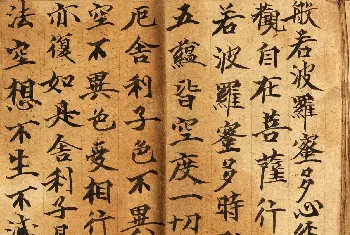 般若波羅蜜多心經
觀自在菩薩行
若波羅蜜多時
五蘊皆空度一切
厄舍利子色不異
空不異色受相行
亦復如是舍利子是
法空想不生不滅